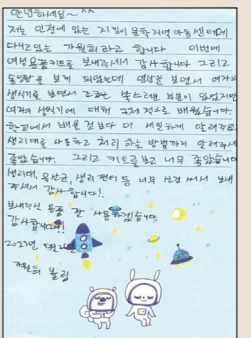 안녕하세요~^^
저는 안정에 있는 지킴이 문화지역아동센터에
다니고있는 가원희라고 합니다 이번에
여성용품키트를 보내주셔서 감사합니다 그리고
동영상을 보게 되었는데 영상을 보면서 여자의
생식기를 보면서 조금은 부분이 있었지만
여자의 생식기에 대해 구체적으로 배웠습니다.
학교에서 배운 것보다 더 세밀하게 알려주셨고
생리대를 사용하고 처리 하는 방법까지 알려주셔서
좋았습니다. 그리고 키트를 보고 너무 좋았습니다
생리대, 유산균, 생리 팬티 등 너무 신경 써서 보내
주셔서 감사합니다!
보내주신 물품 잘 사용하겠습니다.
감사합니다!
2021년
올림